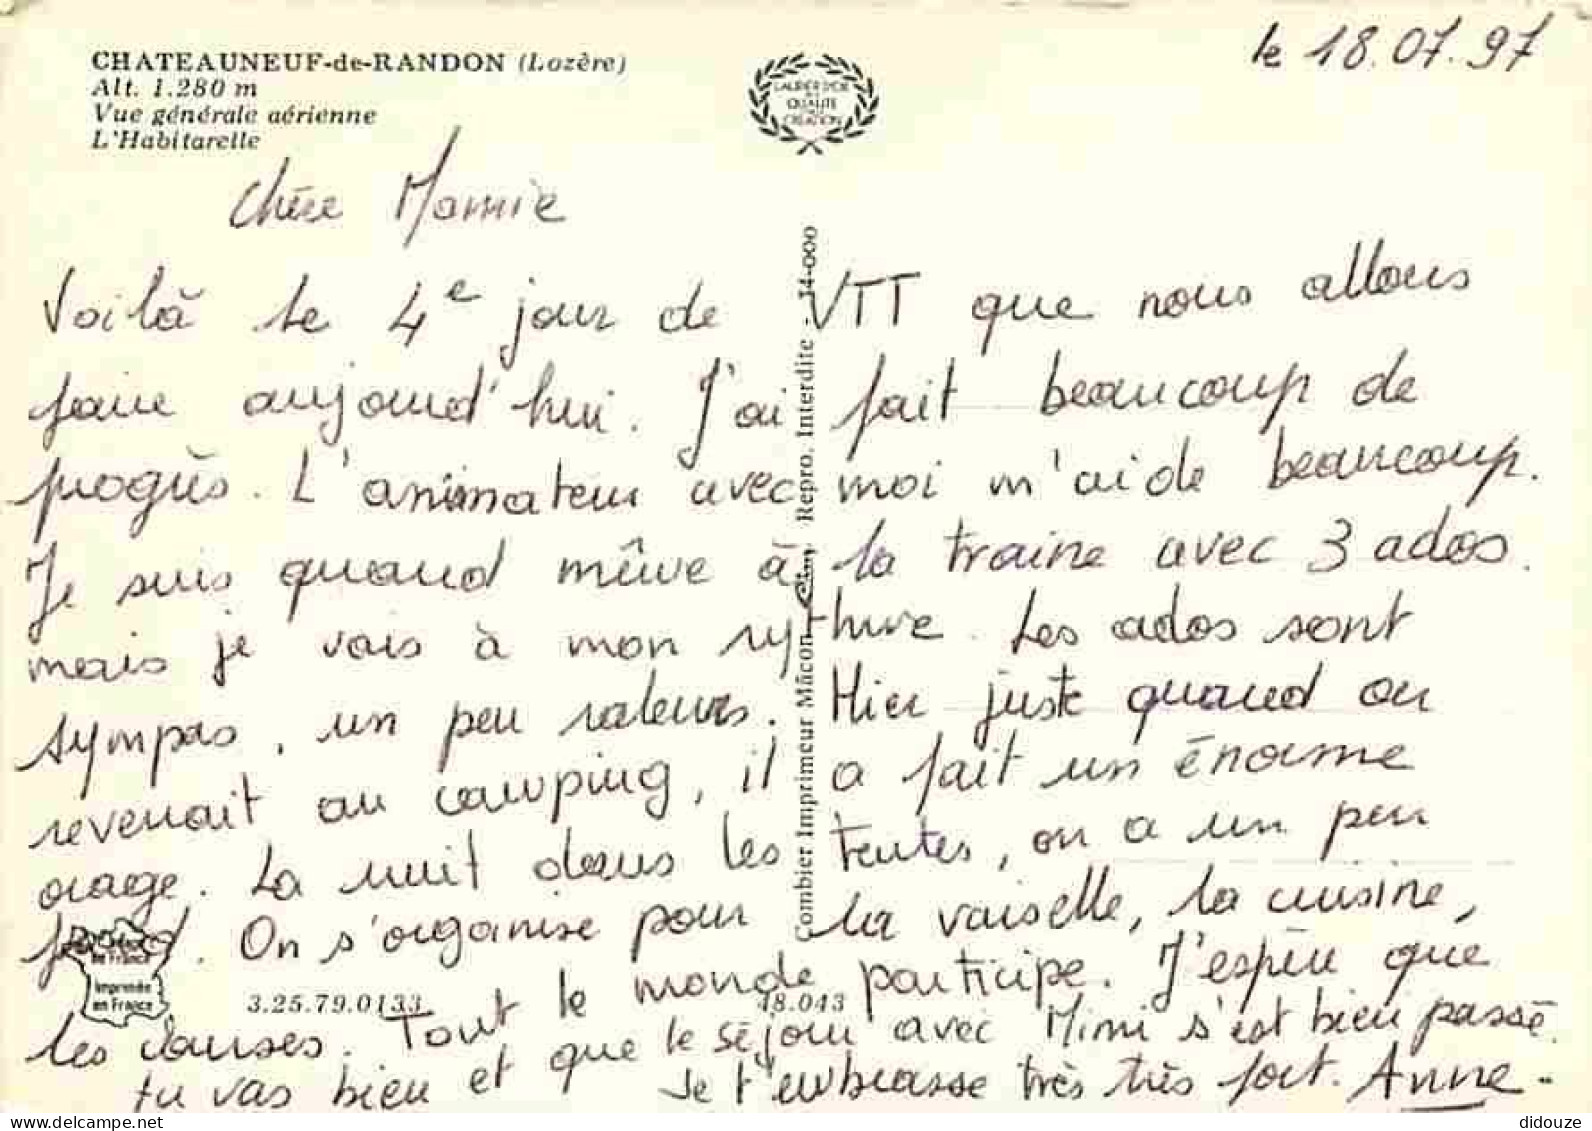 le 18.07.97
CHATEAUNEUF-de-RANDON (Lozère)
Alt. 1.280 m
Vue générale aérienne
L'Habitarelle
LAURIER D'OR
QUALITE
CREATION
Chère Mamie
Voilà le 4e jour de VTT que nous allons
faire aujourd'hui. J'ai fait beaucoup de
progrès. L'animateur avec moi m'aide beaucoup.
Je suis quand même à la traine avec 3 ados.
mais je vais à mon rythme. Les ados sont
sympas, un peu raleurs. Hier juste quand on
revenait au camping, il a fait un énorme
orage. La nuit dans les tentes, on a un peu
froid. On s'organise pour la vaiselle, la cuisine,
les danses. Tout le monde participe. J'espère que
tu vas bien et que le séjour avec Mimi s'est bien passé.
Je t'embrasse très très fort. Anne.
Combier Imprimeur Mâcon Repro. Interdite - J4-000
de France
Imprimée
en France
3.25.79.0133
48.043
didouze